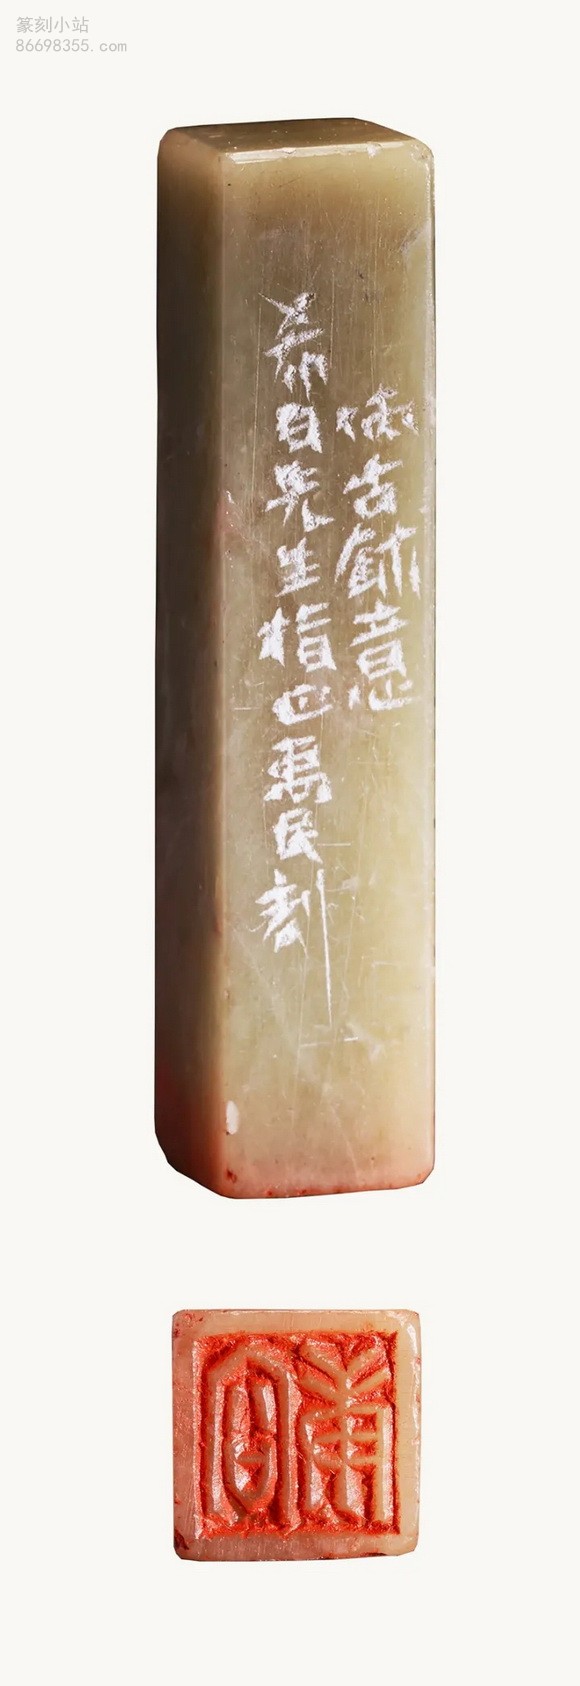 篆刻小站
86698355.com
古鉨意
希白先生指正禹民刻
容庚